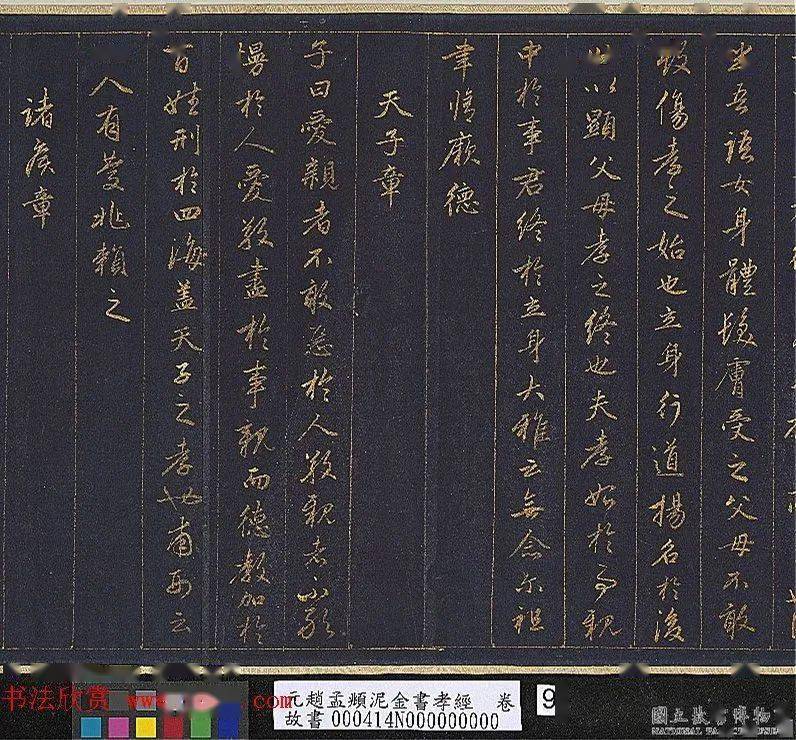 坐吾語女身體髮膚受之父母不敢
毀傷孝之始也立身行道揚名於後
世以顯父母孝之終也夫孝始於事親
中於事君終於立身大雅云無念尔祖
聿脩厥德
天子章
子曰愛親者不敢惡於人敬親者不敢
慢於人愛敬盡於事親而德教加於
百姓刑於四海蓋天子之孝也甫刑云
一人有慶兆賴之
諸侯章
书法欣赏
元趙孟頫泥金書孝經 卷
故書 000414N000000000
9
國立故宮博物
NATIONAL PALACE